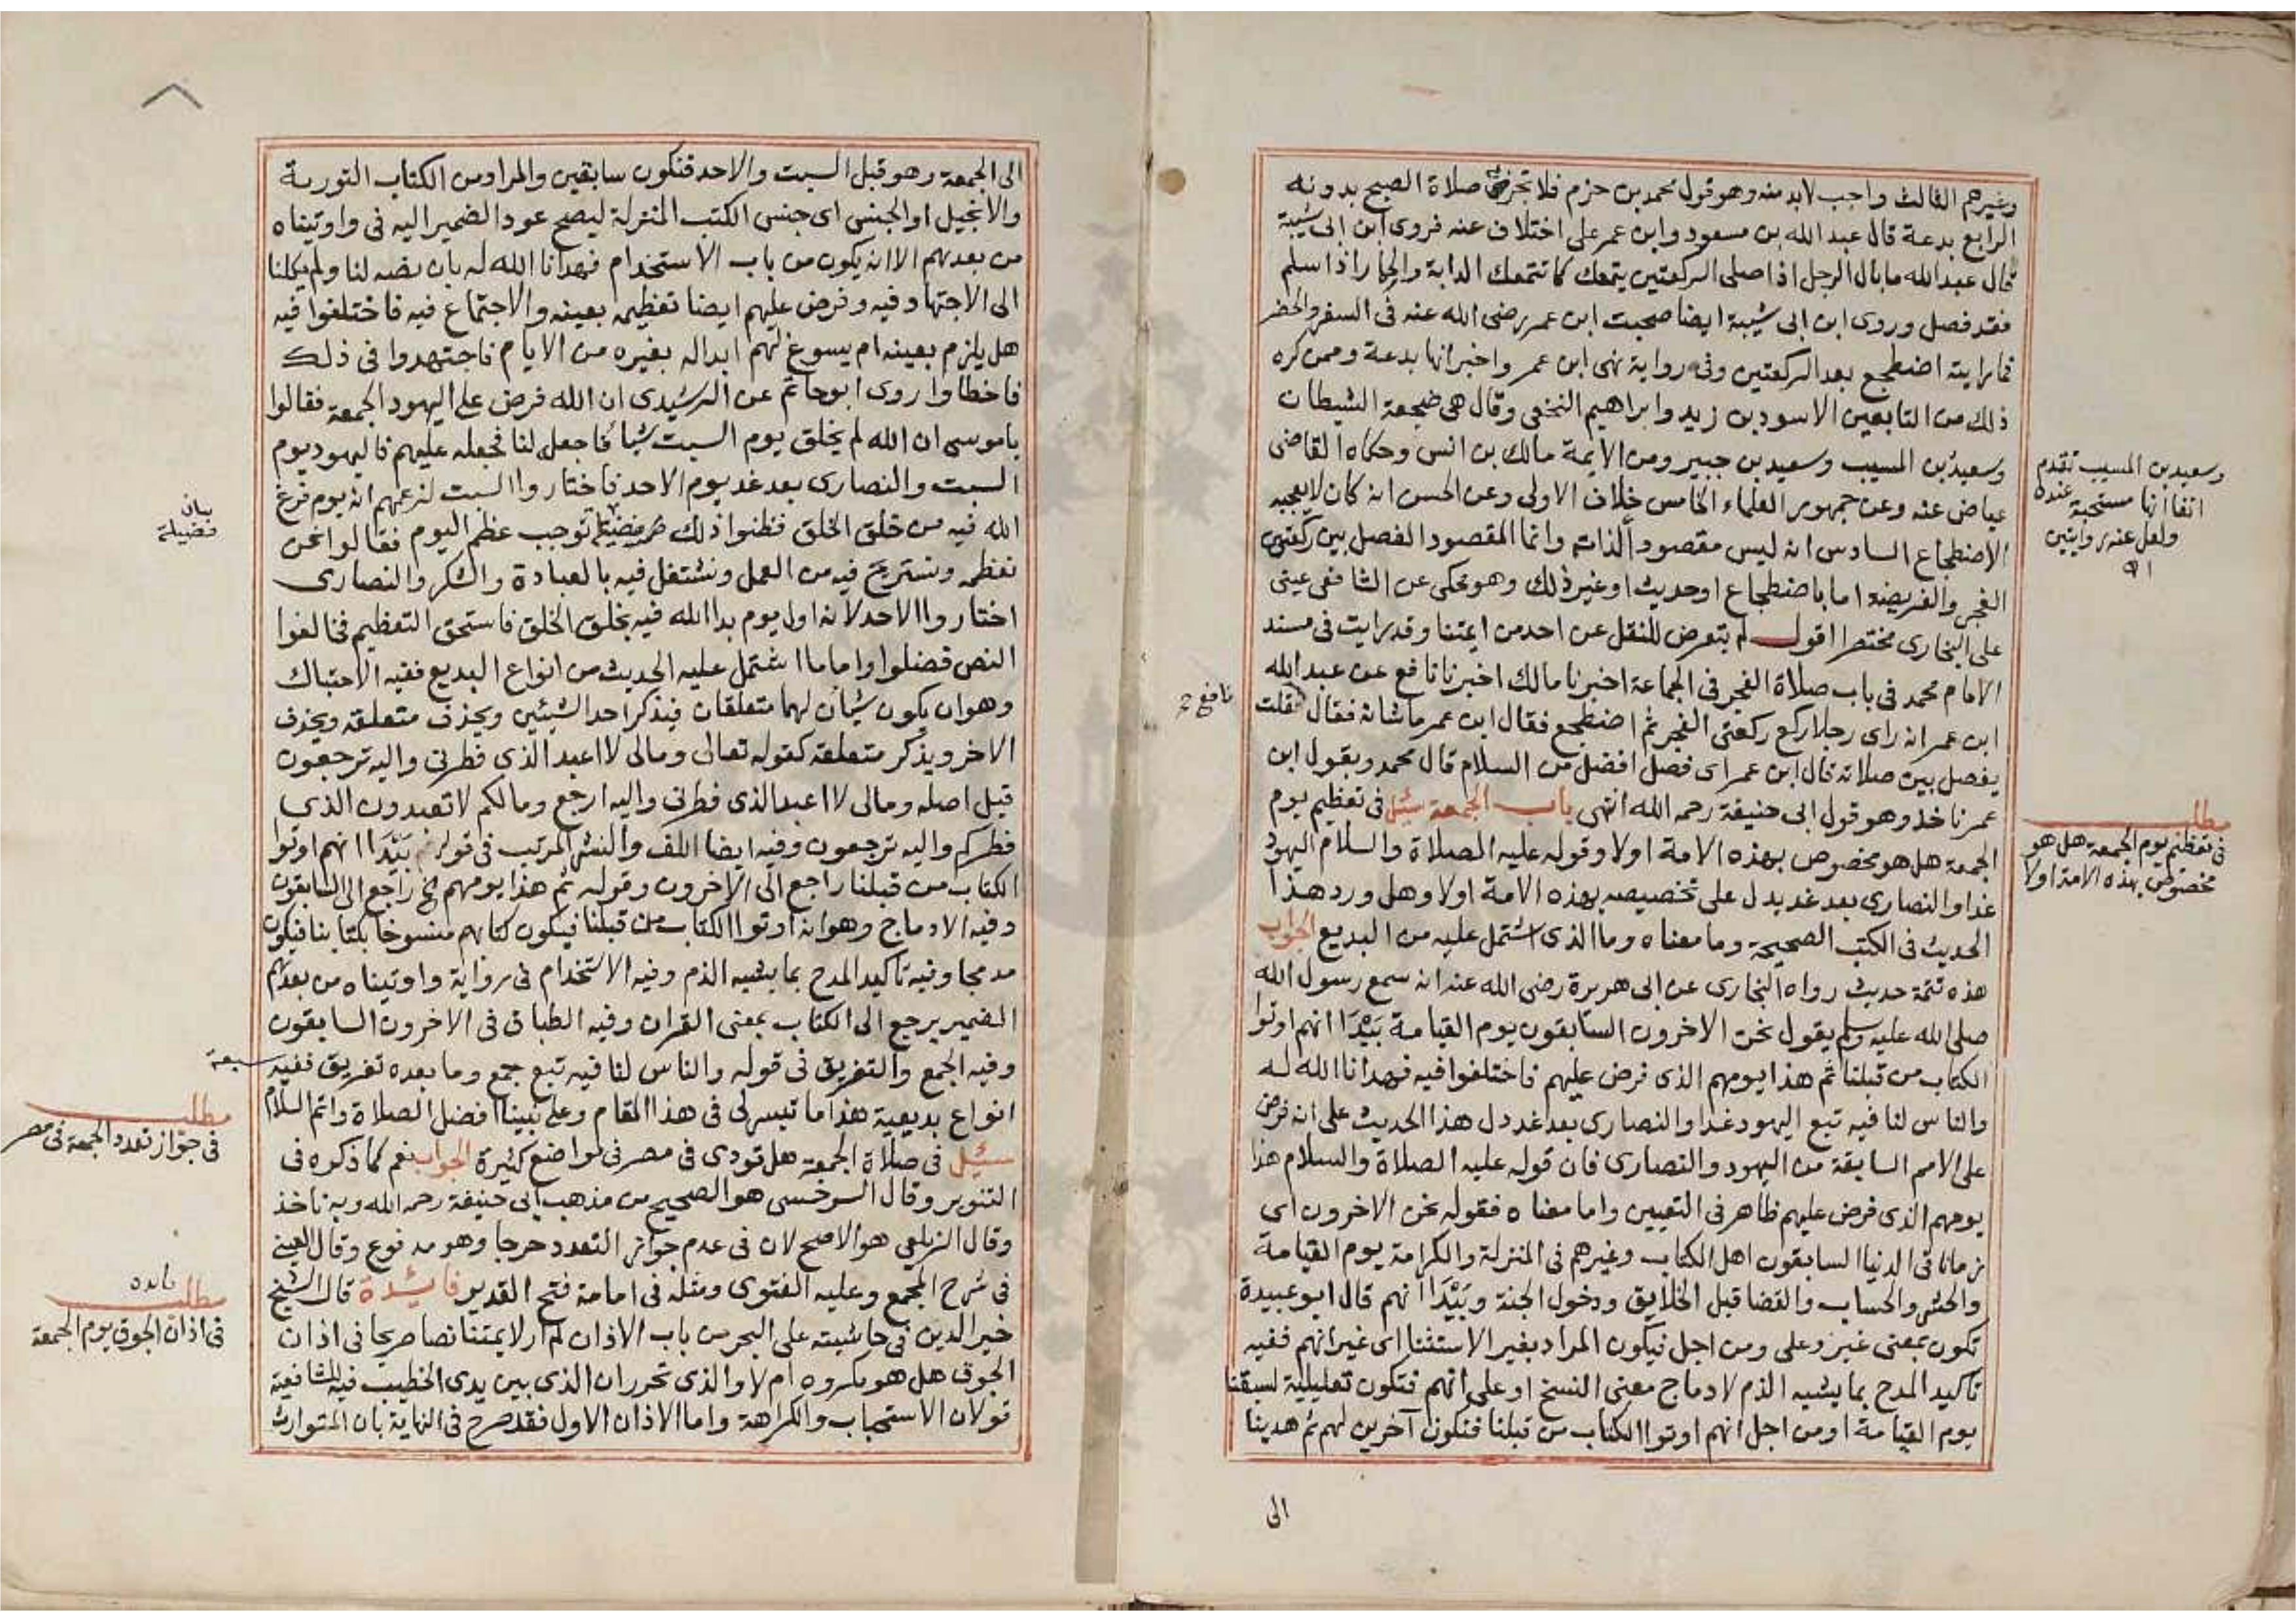 وغيرهم الثالث واجب لابد منه وهو قول محمد بن حزم فلا تجزئ صلاة الصبح بدونه
الرابع بدعة قال عبد الله بن مسعود وابن عمر على اختلاف عنه فروى ابن ابى شيبة
قال عبد الله ما بال الرجل اذا صلى الركعتين يتمعك كما تتمعك الدابة والحمار اذا سلم
فقد فصل وروى ابن ابى شيبة ايضا صحبت ابن عمر رضى الله عنه فى السفر والحضر
فما رايته اضطجع بعد الركعتين وفى رواية نهى ابن عمر واخبر انها بدعة وممن كره
ذلك من التابعين الاسود بن زيد وابراهيم النخعى وقال هى ضجعة الشيطان
وسعيد بن المسيب وسعيد بن جبير ومن الايمة مالك بن انس وحكاه القاضى
عياض عنه وعن جمهور العلماء الخامس خلاف الاولى وعن الحسن انه كان لا يعجبه
الاضطجاع السادس انه ليس مقصود الذاته وانما المقصود الفصل بين ركعتى
الفجر والفريضة اما باضطجاع او حديث او غير ذلك وهو محكى عن الشافعى عينى
على البخارى مختصرا اقول لم يتعرض للنقل عن احد من ايمتنا وقد رايت فى مسند
الامام محمد فى باب صلاة الفجر فى الجماعة اخبرنا مالك اخبرنا نافع عن عبد الله
ابن عمر انه راى رجلا ركع ركعتى الفجر ثم اضطجع فقال ابن عمر ما شانه فقال فقلت
يفصل بين صلاته قال ابن عمر اى فصل افضل من السلام قال محمد وبقول ابن
عمر ناخذ وهو قول ابى حنيفة رحمه الله انتهى باب الجمعة سئل فى تعظيم يوم
الجمعة هل هو مخصوص بهذه الامة اولا وقوله عليه الصلاة والسلام اليهود
غدا والنصارى بعد غد يدل على تخصيصه بهذه الامة اولا وهل ورد هذا
الحديث فى الكتب الصحيحة وما معناه وما الذى اشتمل عليه من البديع الجواب
هذه تتمة حديث رواه البخارى عن ابى هريرة رضى الله عنه انه سمع رسول الله
صلى الله عليه وسلم يقول نحن الاخرون السابقون يوم القيامة بَيْدَ انهم اوتوا
الكتاب من قبلنا ثم هذا يومهم الذى فرض عليهم فاختلفوا فيه فهدانا الله له
والناس لنا فيه تبع اليهود غدا والنصارى بعد غد دل هذا الحديث على انه فرض
على الامم السابقة من اليهود والنصارى فان قوله عليه الصلاة والسلام هذا
يومهم الذى فرض عليهم ظاهر فى التعيين واما معناه فقوله نحن الاخرون اى
زمانا فى الدنيا السابقون اهل الكتاب وغيرهم فى المنزلة والكرامة يوم القيامة
والحشر والحساب والقضا قبل الخلايق ودخول الجنة وبَيْدَ انهم قال ابو عبيدة
تكون بمعنى غير وعلى ومن اجل فيكون المراد بغير الاستثنا اى غير انهم ففيه
تاكيد المدح بما يشبه الذم لادماج معنى النسخ او على انهم فتكون تعليلية لسبقنا
يوم القيامة او من اجل انهم اوتوا الكتاب من قبلنا فنكون آخرين لهم ثم هدينا
الى
وسعيد بن المسيب تقدم
انفا انها مستحبة عنده
ولعل عنه روايتين
اه
مطلب
فى تعظيم يوم الجمعة هل هو
مخصوص بهذه الامة اولا
نافع
الى الجمعة وهو قبل السبت والاحد فنكون سابقين والمراد من الكتاب التورية
والانجيل او الجنس اى جنس الكتب المنزلة ليصح عود الضمير اليه فى واوتيناه
من بعدهم الا ان يكون من باب الاستخدام فهدانا الله له بان نصه لنا ولم يكلنا
الى الاجتهاد فيه وفرض عليهم ايضا تعظيمه بعينه والاجتماع فيه فاختلفوا فيه
هل يلزم بعينه ام يسوغ لهم ابداله بغيره من الايام فاجتهدوا فى ذلك
فاخطاوا روى ابو حاتم عن الرشيدى ان الله فرض على اليهود الجمعة فقالوا
يا موسى ان الله لم يخلق يوم السبت شيا فاجعل لنا فجعله عليهم فاليهود يوم
السبت والنصارى بعد غد يوم الاحد فاختاروا السبت لزعمهم انه يوم فرغ
الله فيه من خلق الخلق فظنوا ذلك فضيلة توجب عظم اليوم فقالوا نحن
نعظمه ونستريح فيه من العمل ونشتغل فيه بالعبادة والشكر والنصارى
اختاروا الاحد لانه اول يوم بدا الله فيه بخلق الخلق فاستحق التعظيم فخالفوا
النص فضلوا واما ما اشتمل عليه الحديث من انواع البديع ففيه الاحتباك
وهو ان يكون شيأن لهما متعلقان فيذكر احد الشيئين ويحذف متعلقه ويحذف
الاخر ويذكر متعلقه كقوله تعالى ومالى لا اعبد الذى فطرنى واليه ترجعون
قيل اصله ومالى لا اعبد الذى فطرنى واليه ارجع ومالكم لا تعبدون الذى
فطركم واليه ترجعون وفيه ايضا اللف والنشر المرتب فى قوله بَيْدَ انهم اوتوا
الكتاب من قبلنا راجع الى الاخرون وقوله ثم هذا يومهم الخ راجع الى السابقون
وفيه الادماج وهو انه اوتوا الكتاب من قبلنا فيكون كتابهم منسوخا بكتابنا فيكون
مدمجا وفيه تاكيد المدح بما يشبه الذم وفيه الاستخدام فى رواية واوتيناه من بعدهم
الضمير يرجع الى الكتاب بمعنى القران وفيه الطباق فى الاخرون السابقون
وفيه الجمع والتفريق فى قوله والناس لنا فيه تبع جمع وما بعده تفريق ففيه سبعة
انواع بديعية هذا ما تيسر لى فى هذا المقام وعلى نبينا افضل الصلاة واتم السلام
سئل فى صلاة الجمعة هل تودى فى مصر فى مواضع كثيرة الجواب نعم كما ذكره فى
التنوير وقال السرخسى هو الصحيح من مذهب ابى حنيفة رحمه الله وبه ناخذ
وقال الزيلعى هو الاصح لان فى عدم جواز التعدد حرجا وهو مدفوع وقال العينى
فى شرح المجمع وعليه الفتوى ومثله فى امامة فتح القدير فائدة قال الشيخ
خير الدين فى حاشيته على البحر من باب الاذان لم ار لايمتنا نصا صريحا فى اذان
الجوق هل هو مكروه ام لا والذى تحرر ان الذى بين يدى الخطيب فيه للشافعية
قولان الاستحباب والكراهة واما الاذان الاول فقد صرح فى النهاية بان المتوارث
بيان
فضيلة
مطلب
فى جواز تعدد الجمعة فى مصر
مطلب
فى اذان الجوق يوم الجمعة